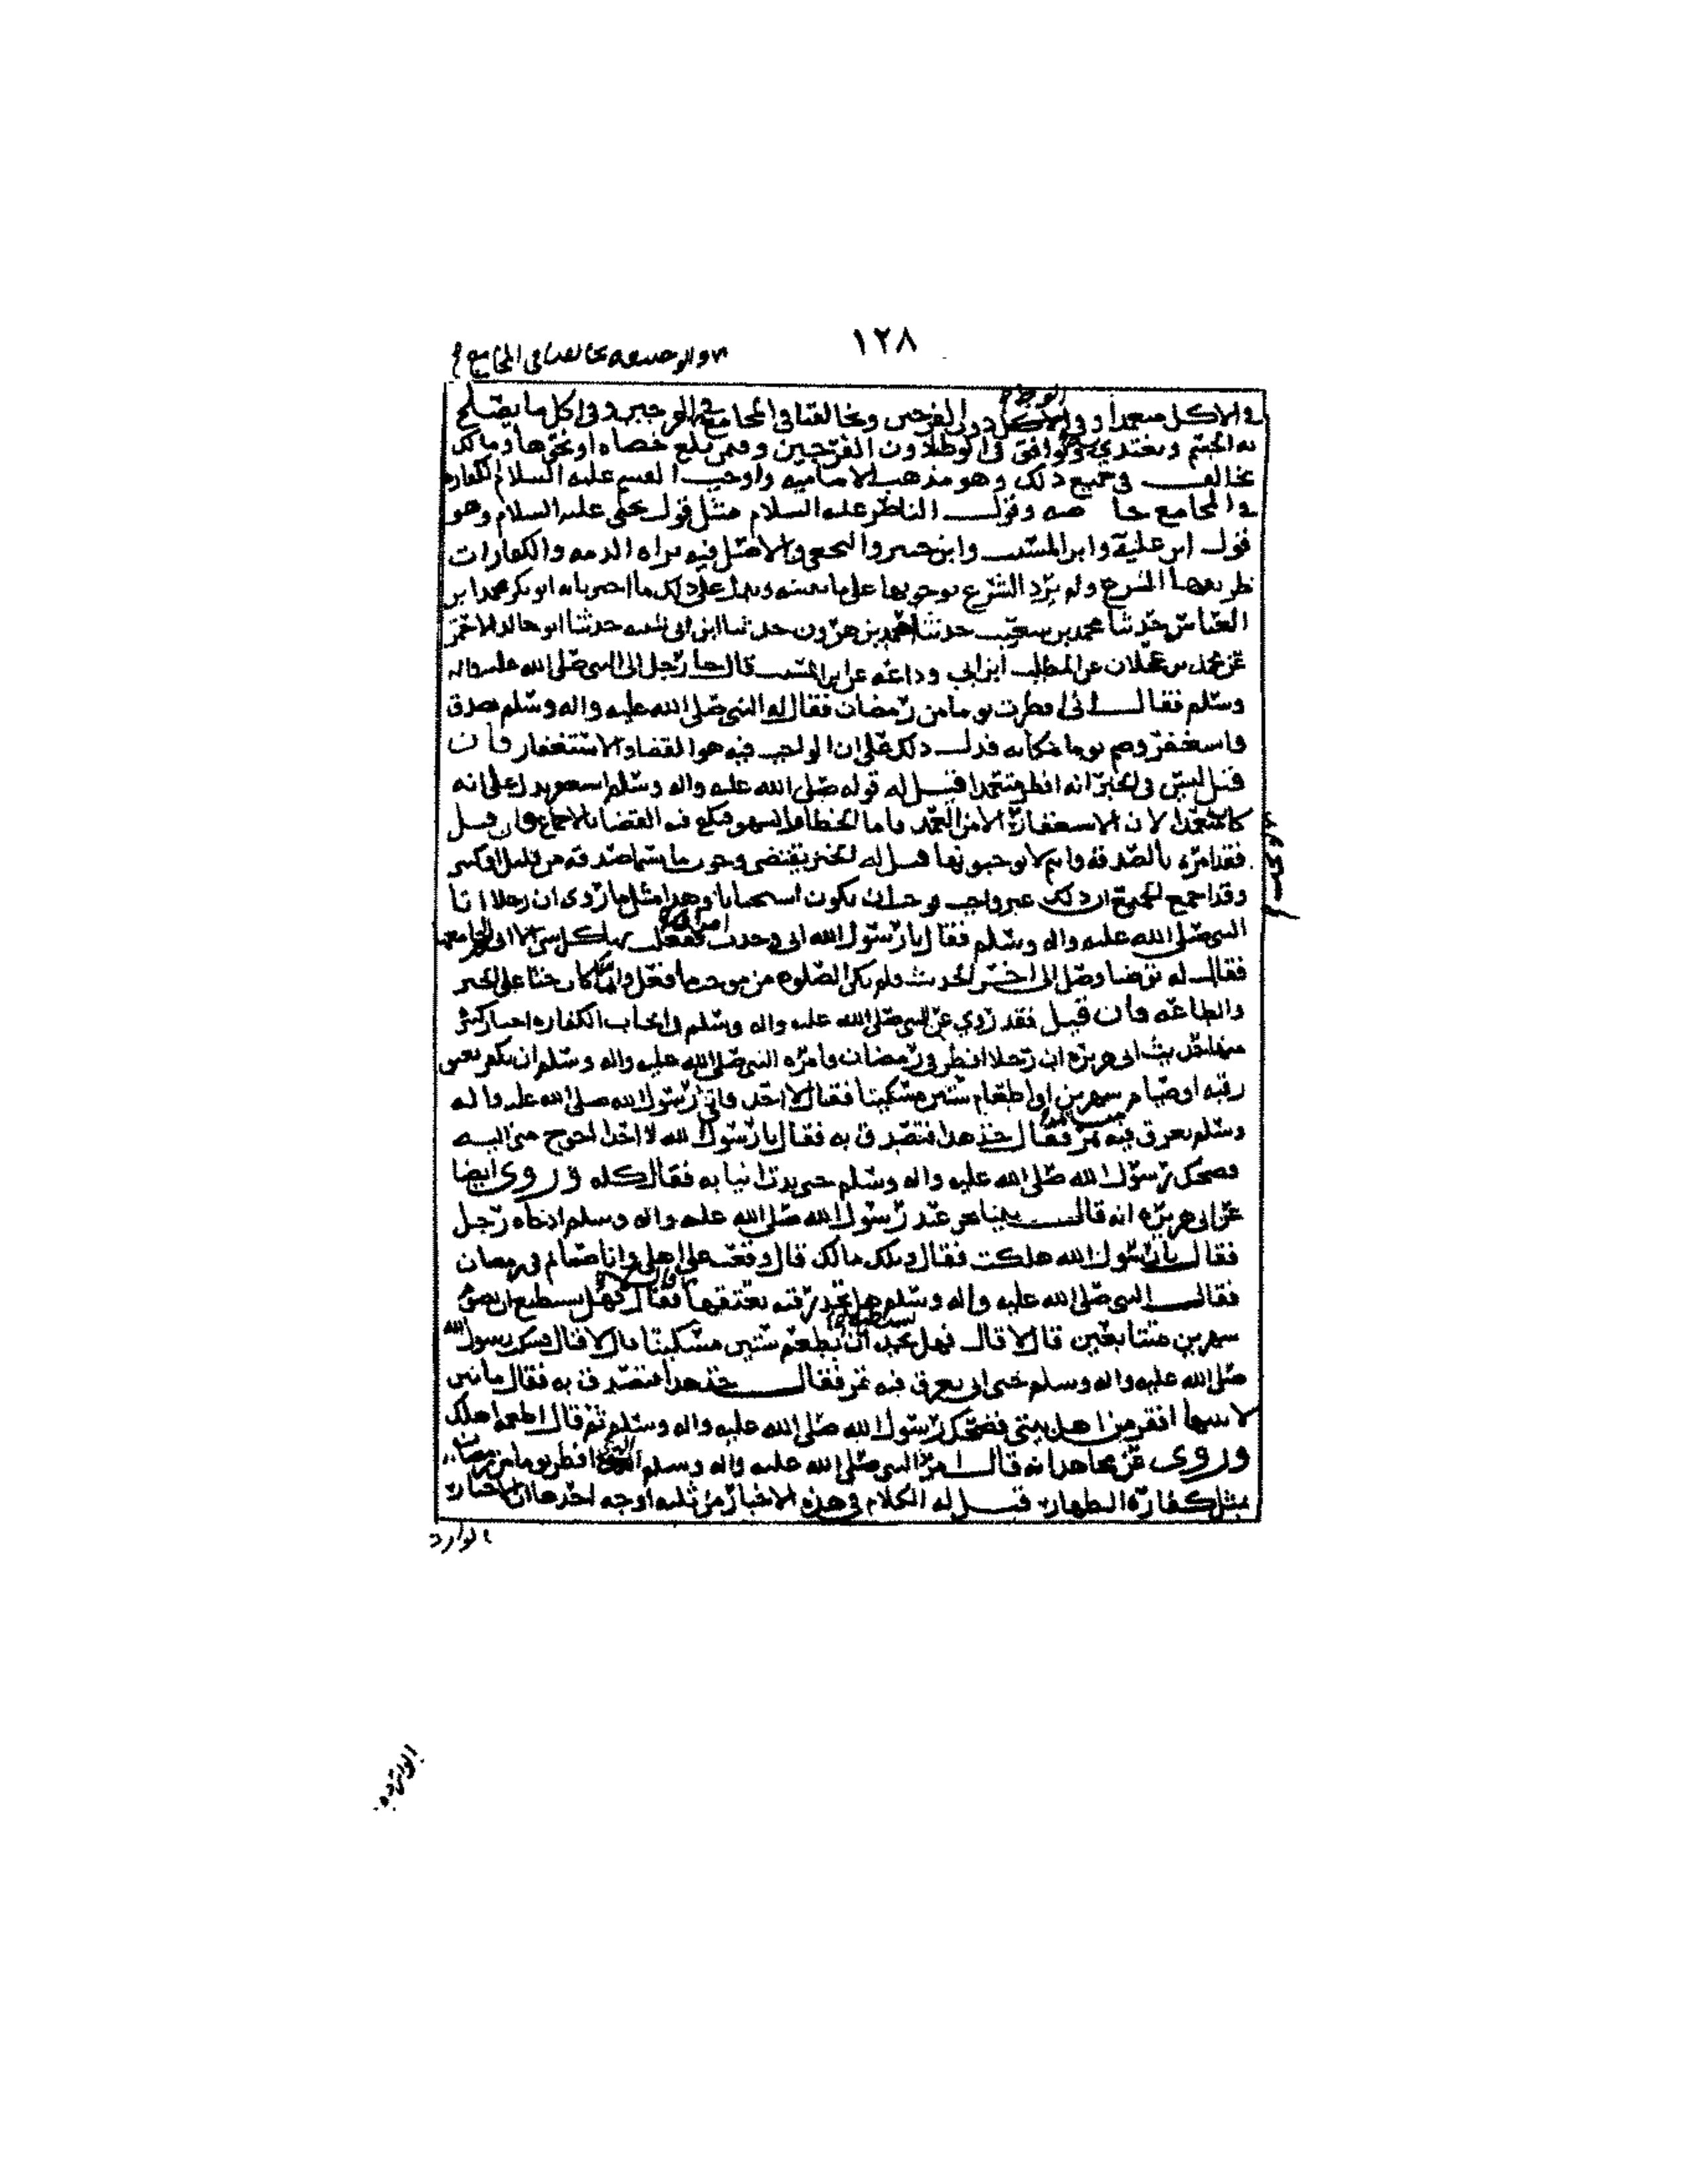 ١٢٨
وابو حنيفة يخالفنا في المجامع
في الاكل متعمدا وفي الاكل دون الفرجين ويخالفنا في المجامع في الفرجين وفي اكل ما يصلح
به الجسم ويغتذي به ويوافق في الوطء دون الفرجين وفمن بلع حصاه او نحوها ومالك
يخالف في جميع ذلك وهو مذهب الامامية واوجب القسم عليه السلام الكفارة
في المجامع خاصه وقول الناطر عليه السلام مثل قول يحيى عليه السلام وهو
قول ابن علية وابن المسيب وابن جبير والنخعي والاصل فيه براه الذمه والكفارات
طريقها الشرع ولم يرد الشرع بوجوبها على ما نعينه ويدل على ذلك ما اخبرنا به ابو بكر محمد ابن
العباس حدثنا محمد بن شعيب حدثنا احمد بن هرون حدثنا ابن ابي شيبه حدثنا ابو خالد الاحمر
عن محمد بن عجلان عن المطلب ابن ابي وداعه عن ابن المسيب قال جا رجل الى النبي صلى الله عليه واله
وسلم فقال اني افطرت يوما من رمضان فقال له النبي صلى الله عليه واله وسلم تصدق
واستغفر وصم يوما مكانه فدل ذلك على ان الواجب فيه هو القضا والاستغفار فان
قيل ليس في الخبر انه افطر متعمدا قيل له قوله صلى الله عليه واله وسلم استغفر يدل على انه
كان متعمدا لان الاستغفار الا من العمد فاما الخطا والسهو فيكفي فيه القضا بالاجماع فان قيل
فقد امره بالصدقه وانتم لا توجبونها قيل له الخبر يقتضي وجوب ما يسما صدقه من قليل او كثير
وقد اجمع الجميع ان ذلك غير واجب فوجب ان يكون استحبابا وهذا مثل ما روى ان رجلا اتا
النبي صلى الله عليه واله وسلم فقال يا رسول الله اني وجدت امراه ففعلت بها كل شي الا اني لم اجامعها
فقال له توضا وصل الى اخر الحديث ولم تكن الصلوه من موجب ما فعل وانما كان حثا على الخير
والطاعه فان قيل فقد روي عن النبي صلى الله عليه واله وسلم في ايجاب الكفاره اخبار كثيره
منها حديث ابي هريره ان رجلا افطر في رمضان فامره النبي صلى الله عليه واله وسلم ان يكفر بعتق
رقبه او صيام شهرين او اطعام ستين مسكينا فقال لا اجد فاتي رسول الله صلى الله عليه واله
وسلم بعرق فيه تمر فقال خذ هذا فتصدق به فقال يا رسول الله لا اجد احوج مني اليه
فضحك رسول الله صلى الله عليه واله وسلم حتى بدت انيابه فقال كله وروى ايضا
عن ابي هريره انه قال بينا نحن عند رسول الله صلى الله عليه واله وسلم اذ جاه رجل
فقال يا رسول الله هلكت فقال ويلك مالك قال وقعت على اهلي وانا صائم في رمضان
فقال النبي صلى الله عليه واله وسلم هل تجد رقبه تعتقها فقال لا قال فهل تستطيع ان تصوم
شهرين متتابعين قال لا قال فهل تجد ان تطعم ستين مسكينا قال لا قال فسكت رسول الله
صلى الله عليه واله وسلم حتى اتي بعرق فيه تمر فقال خذ هذا فتصدق به فقال ما بين
لابتيها افقر من اهل بيتي فضحك رسول الله صلى الله عليه واله وسلم ثم قال اطعمه اهلك
وروى عن مجاهد انه قال امر النبي صلى الله عليه واله وسلم الذي افطر يوما من رمضان
بمثل كفارة الظهار قيل له الكلام في هذه الاخبار من ثلثه اوجه احدها ان الاخبار
الوارد
الوارده